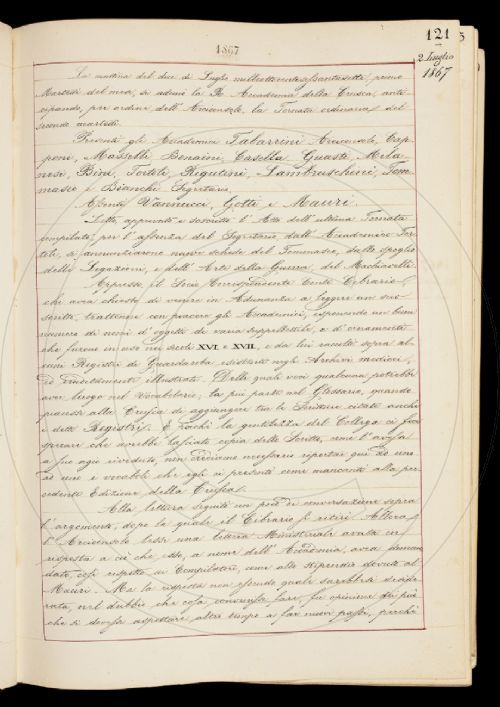 121
2 Luglio
1867
1867
La mattina del due di Luglio milleottocentosessantasette, primo
Martedì del mese, si adunò la R. Accademia della Crusca, anti-
cipando, per ordine dell'Arciconsolo, la Tornata ordinaria del
secondo martedì.
Presenti gli Accademici Tabarrini Arciconsolo, Cap-
poni, Masselli, Bonaini, Casella, Guasti, Mila-
nesi, Bini, Tortoli, Rigutini, Lambruschini, Tom-
maseo e Bianchi Segretario.
Assenti Vannucci, Gotti e Mauri.
Letto, approvato e soscritto l'Atto dell'ultima Tornata
compilato, per l'assenza del Segretario, dall'Accademico Tor-
toli, si annunziarono nuove schede del Tommaseo, sullo spoglio
delle Legazioni, e dell'Arte della Guerra, del Machiavelli.
Appresso il Socio Corrispondente Conte Cibrario,
che avea chiesto di venire in Adunanza a leggere un suo
scritto, trattenne con piacere gli Accademici, esponendo un buon
numero di nomi d'oggetti di varia suppellettile, e di ornamenti
che furono in uso nei secoli XVI e XVII, e da lui raccolti sopra al-
cuni Registri di Guardaroba esistenti negli Archivi medicei,
ed eruditamente illustrati. Delle quali voci qualcuna potrebbe
aver luogo nel Vocabolario; la più parte nel Glossario, quando
piacesse alla Crusca di aggiungere tra le Scritture citate anche
i detti Registri. E poichè la gentilezza del Collega ci fece
sperare che avrebbe lasciato copia dello Scritto, come l'avesse
a suo agio riveduto, non crediamo necessario riportar qui ad uno
ad uno i vocaboli che egli ci presentò come mancanti alla pre-
cedente Edizione della Crusca.
Alla lettura seguitò un poco di conversazione sopra
l'argomento, dopo la quale il Cibrario si ritirò. Allora
l'Arciconsolo lesse una lettera Ministeriale avuta in
risposta a ciò che esso, a nome dell'Accademia, avea doman-
dato, così rispetto ai Compilatori, come allo stipendio dovuto al
Mauri. Ma la risposta non essendo quale sarebbesi deside-
rata, nel dubbio che cosa convenisse fare, fu opinione dei più
che si dovesse aspettare altro tempo a far nuovi passi, perchè